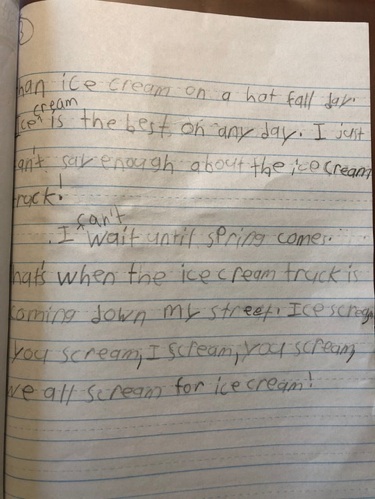 han ice cream on a hot fall day.
cream
Ice is the best, on any day. I just
an't say enough about the ice cream
ruck!
can't
I wait until spring comes.
hat's when the ice cream truck is
coming down my street. Ice scream
you scream, I scream, you scream,
we all scream for ice cream!